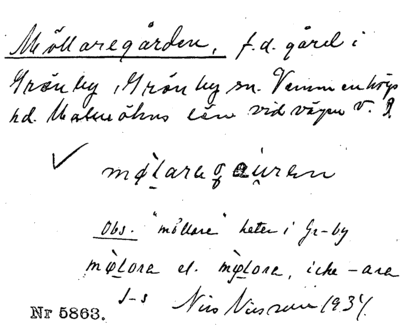 Möllaregården, f.d. gård i
Grönby, Grönby sn. Vemmenhögs
hd. Malmöhus län vid vägen V. D.
✓ mø̀laregaúren
Obs. "möllare" heter i Gr-by
mø̀lora el. mø̀lora, icke -ara
J-s Nils Nilsson 1934.
Nr 5863.